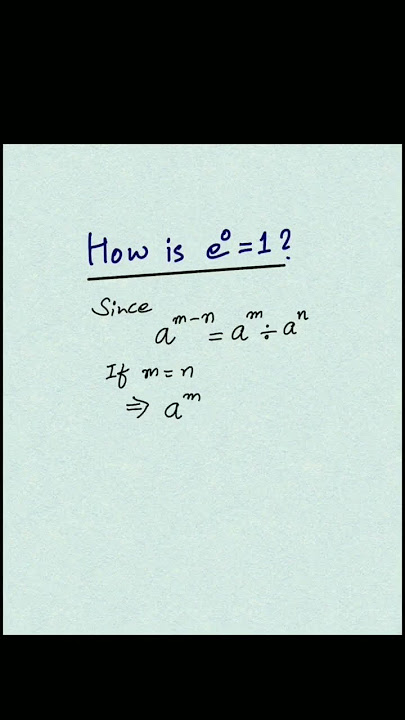 How is e⁰=1?
Since
aᵐ⁻ⁿ = aᵐ ÷ aⁿ
If m=n
⇒ aᵐ